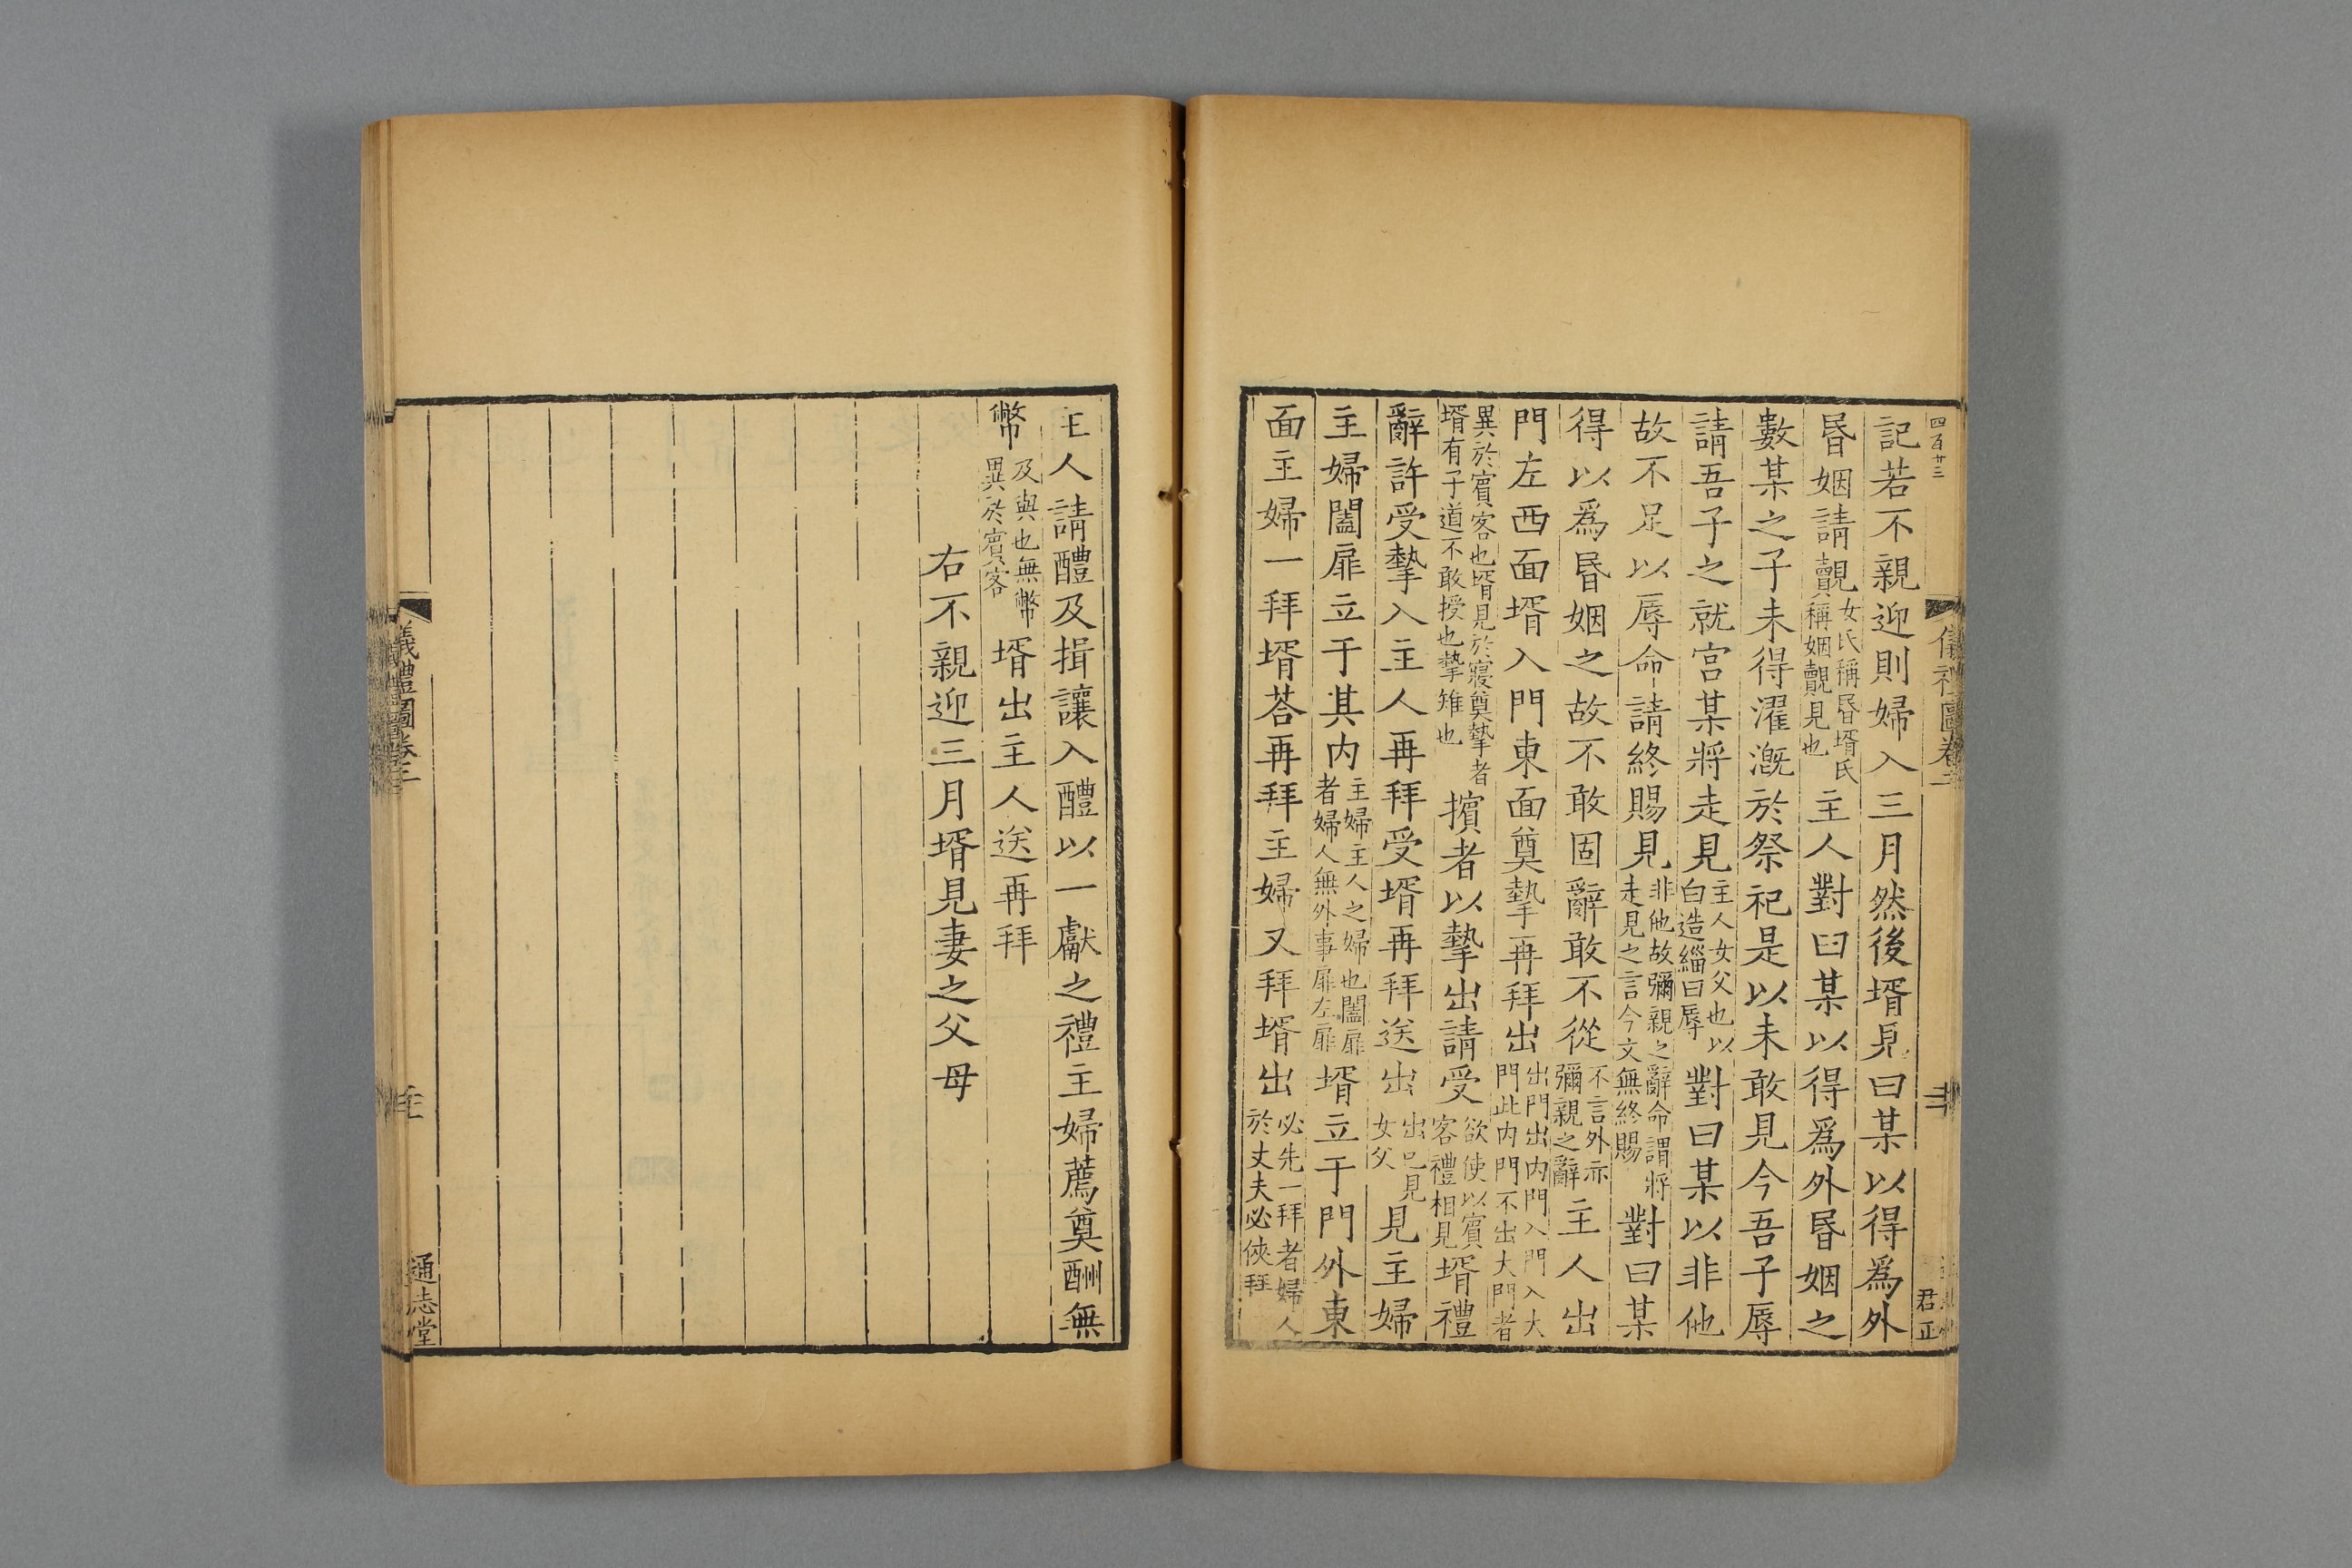 四百廿三
儀禮圖卷二
君正
記若不親迎則婦入三月然後壻見曰某以得爲外
昬姻請覿女氏稱昬壻氏稱姻覿見也主人對曰某以得爲外昬姻之
數某之子未得濯漑於祭祀是以未敢見今吾子辱
請吾子之就宮某將走見主人女父也以白造緇曰辱對曰某以非他
故不足以辱命請終賜見非他故彌親之辭命謂將走見之言今文無終賜對曰某
得以爲昬姻之故不敢固辭敢不從不言外亦彌親之辭主人出
門左西面壻入門東面奠摯再拜出出門出內門入門入大門此內門不出大門者
異於賓客也壻見於寢奠摯者壻有子道不敢授也摯雉也擯者以摯出請受欲使以賓客禮相見壻禮
辭許受摯入主人再拜受壻再拜送出出已見女父見主婦
主婦闔扉立于其內主婦主人之婦也闔扉者婦人無外事扉左扉壻立于門外東
面主婦一拜壻荅再拜主婦又拜壻出必先一拜者婦人於丈夫必俠拜
主人請醴及揖讓入醴以一獻之禮主婦薦奠酬無
幣及與也無幣異於賓客壻出主人送再拜
右不親迎三月壻見妻之父母
儀禮圖卷二
通志堂